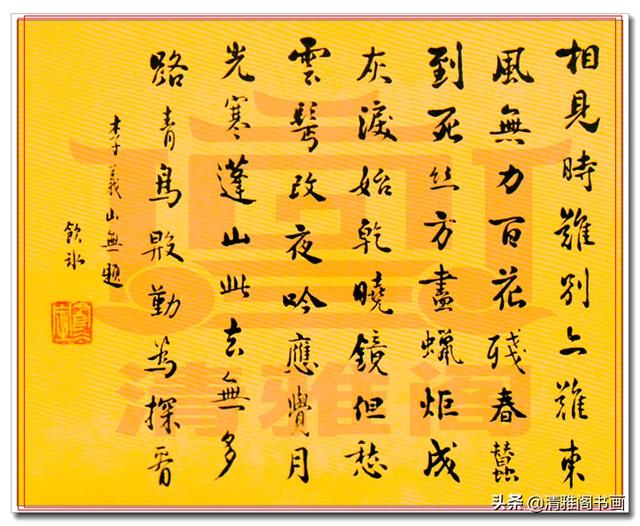 相見時難別亦難東
風無力百花殘春蠶
到死丝方盡蠟炬成
灰淚始乾曉鏡但愁
雲鬢改夜吟應覺月
光寒蓬山此去無多
路青鳥殷勤為探看
李義山無題
飲冰
清雅阁
头条 @清雅阁书画